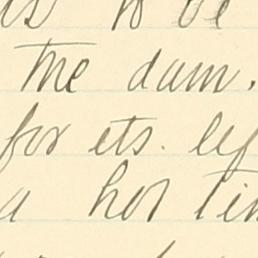 to be
the dam.
for ets. leg
a hot tim